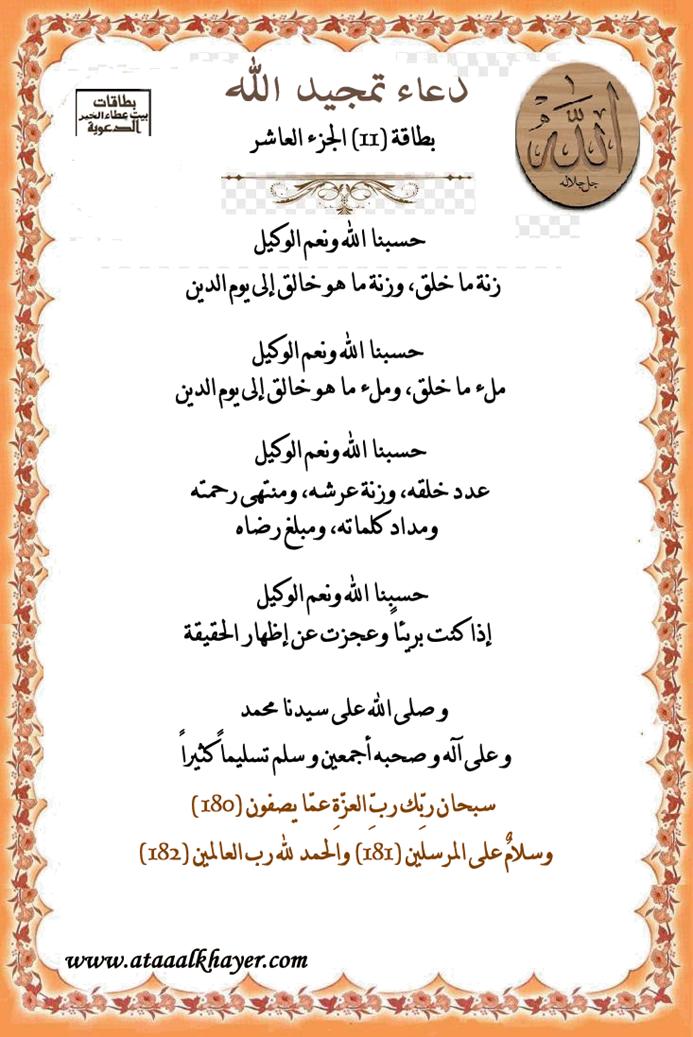 دعاء تمجيد الله
بطاقة (11) الجزء العاشر
بطاقات
بيت عطاء الخير
الدعوية
الله
جل جلاله
حسبنا الله ونعم الوكيل
زنة ما خلق، وزنة ما هو خالق إلى يوم الدين
حسبنا الله ونعم الوكيل
ملء ما خلق، وملء ما هو خالق إلى يوم الدين
حسبنا الله ونعم الوكيل
عدد خلقه، وزنة عرشه، ومنتهى رحمته
ومداد كلماته، ومبلغ رضاه
حسبنا الله ونعم الوكيل
إذا كنت بريئاً وعجزت عن إظهار الحقيقة
وصلى الله على سيدنا محمد
وعلى آله وصحبه أجمعين وسلم تسليماً كثيراً
سبحان ربِّك ربِّ العزّةِ عمّا يصفون (180)
وسلامٌ على المرسلين (181) والحمد لله رب العالمين (182)
www.ataaalkhayer.com